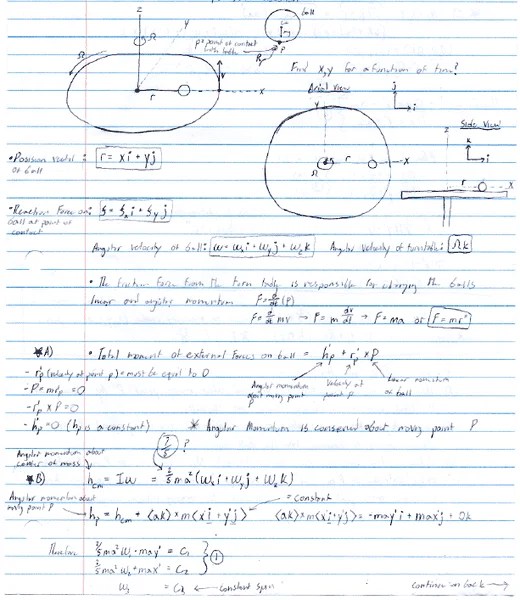 z
y
Ω
Ω
r
x
ball
p
P = point of contact with table
Find x,y for a function of time?
Aerial View
y
j
i
Ω
r
x
Side View
z
k
i
r
x
• Position vector of ball : r = xi + yj
• Reaction Force on ball at point of contact : 
Angular velocity of ball: ω = ω₁i + ω₂j + ω₃k
Angular velocity of turntable: Ωk
• The friction force from the turn table is responsible for changing the balls
linear and angular momentum F = d/dt (P)
F = d/dt mv → F = m dv/dt → F = ma or F = mr''
A) • Total moment of external forces on ball = h'p + r'p × P
- r'p (velocity at point p) = must be equal to 0
- P = mr'p = 0
- r'p × P = 0
- h'p = 0 (hp is a constant)
Angular momentum about moving point P
Velocity at point P
Linear momentum of ball
* Angular Momentum is conserved about moving point P
Angular momentum about center of mass
?
B) hcm = Iω = 2/5 ma² (ω₁i + ω₂j + ω₃k)
Angular momentum about moving point P
hp = hcm + (ak) × m(x'i + y'j)
= constant
(ak) × m(x'i + y'j) = -may'i + max'j + 0k
Therefore
2/5 ma² ω₁ - may' = C₁
2/5 ma² ω₂ + max' = C₂
1
ω₃ = C₃ ← constant spin
continue on back →